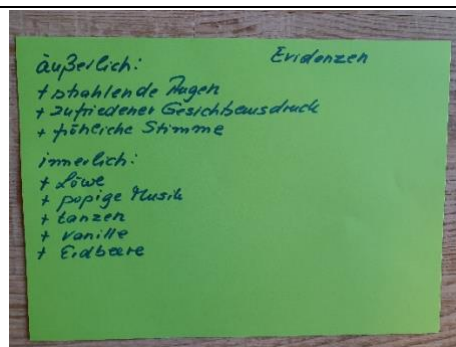 Evidenzen
äußerlich:
+ strahlende Augen
+ zufriedener Gesichtsausdruck
+ fröhliche Stimme
innerlich:
+ Löwe
+ popige Musik
+ tanzen
+ vanille
+ Erdbeere